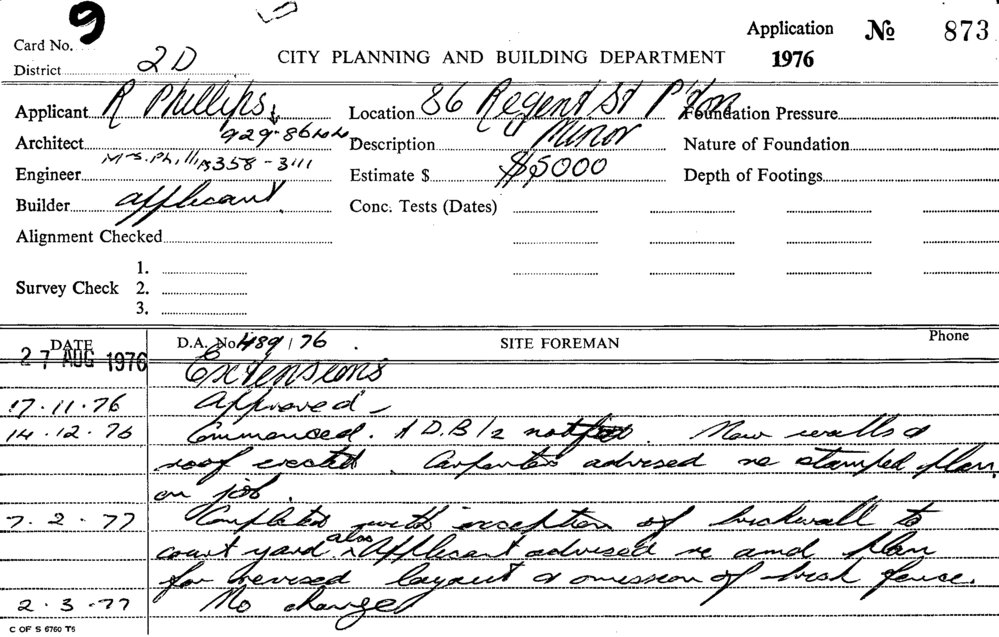 9
Application № 873
Card No.
1976
District 2D
CITY PLANNING AND BUILDING DEPARTMENT
Applicant R Phillips
Location 86 Regent St P'ton
Foundation Pressure
Architect 929-8644
Description Minor
Nature of Foundation
Engineer Mrs. Phillips 358-3111
Estimate $ $5000
Depth of Footings
Builder applicant.
Conc. Tests (Dates)
Alignment Checked
1.
Survey Check 2.
3.
DATE D.A. No. 489/76. SITE FOREMAN Phone
27 AUG 1976 Extensions
17.11.76 Approved -
14.12.76 Commenced. A D.B/2 . New walls &
roof erected. Carpenter advised re stamped plan
on job.
7.2.77 Completed with exception of brickwall to
court yard also Applicant advised re amd plan
for revised layout & omission of brick fence.
2.3.77 No change
C OF S 6760 T5